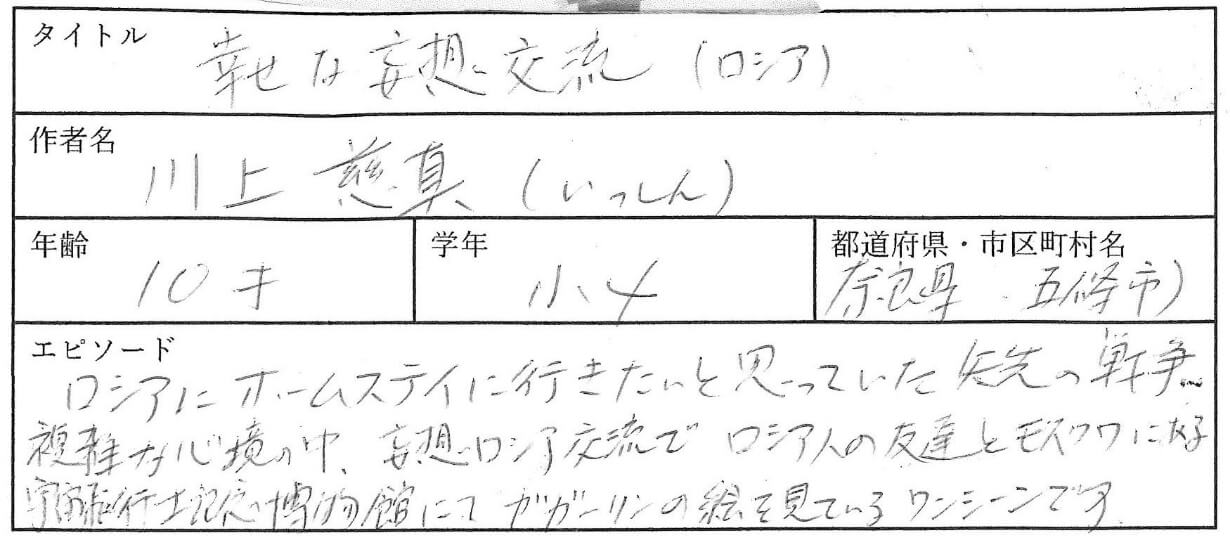 タイトル
幸せな妄想交流（ロシア）
作者名
川上 慈真（いっしん）
年齢
10才
学年
小4
都道府県・市区町村名
奈良県 五條市)
エピソード
ロシアにホームステイに行きたいと思っていた矢先の戦争…
複雑な心境の中、妄想ロシア交流でロシア人の友達とモスクワにある
宇宙飛行士記念博物館にてガガーリンの絵を見ているワンシーンです